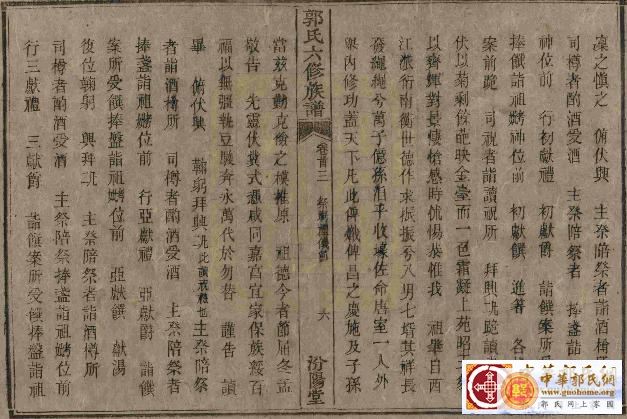 凜之慎之 俯伏興 主祭陪祭者詣酒樽
司樽者酌酒受酒 主祭陪祭者 捧盞詣
神位前 行初獻禮 初獻爵 詣饌案所
捧饌詣祖妣神位前 初獻饌 進箸 各
案前跪 司祝者詣讀祝所 拜興 跪讀
伏以菊剩餘葩映金臺而一色霜凝上苑昭
以齊輝對景悽愴感時怵惕恭惟我 祖肇自西
江派衍南衡世德作求振振兮八男七壻其祥長
發繩繩兮萬子億孫洎乎收壕佐命唐室一人外
架內修功蓋天下凡此俾熾俾昌之慶施及子孫
郭氏六修族譜
卷首三 祭 禮儀節 六 汾陽堂
當茲克勤克儉之樸推原 祖德今者節屆冬
敬告 先靈伏冀式憑咸同嘉喜宜家保族綏百
福以無疆執豆獻斉永萬代於勿替 謹告 讀
畢 俯伏興 鞠躬拜興 此讀戒禮也主祭陪祭
者詣酒樽所 司樽者酌酒受酒 主祭陪祭者
捧盞詣祖妣位前 行亞獻禮 亞獻爵 詣饌
案所受饌捧盤詣祖妣位前 亞獻饌 獻湯
復位鞠躬 興拜 主祭陪祭者詣酒樽所
司樽者酌酒受酒 主祭陪祭捧盞詣祖妣位前
行三獻禮 三獻爵 詣饌案所受饌捧盤詣祖
中華郭氏網
www.guohome.org
郭氏網上家園